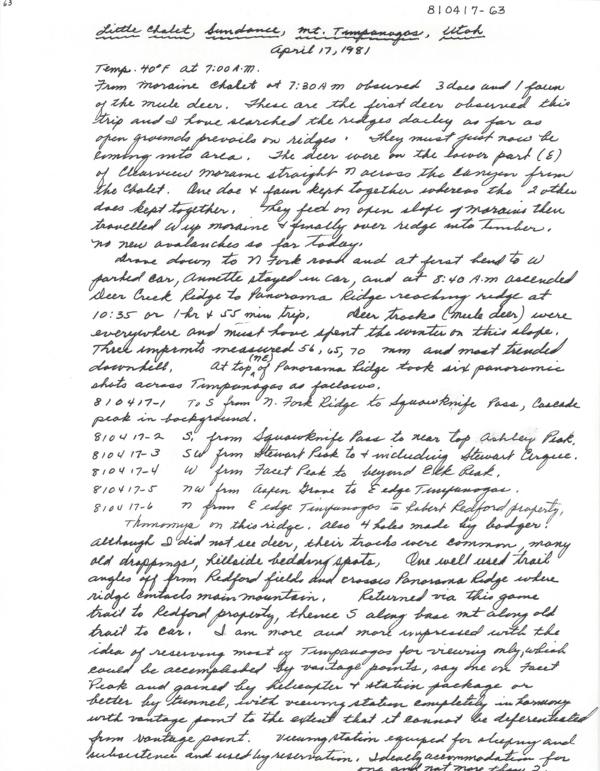 63
810417-63
Little Chalet, Sundance, Mt. Timpanogos, Utah
April 17, 1981
Temp. 40°F at 7:00 A.M.
From Moraine Chalet at 7:30 A M observed 3 does and 1 faun
of the mule deer. These are the first deer observed this
trip and I have searched the ridges dailey as far as
open grounds prevails on ridges. They must just now be
coming into area. The deer were on the lower part (E)
of Clearview Moraine straight N across the canyon from
the Chalet. One doe & faun kept together whereas the 2 other
does kept together. They fed on open slope of moraine then
travelled W up moraine & finally over ridge into timber.
No new avalanches so far today.
Drove down to N Fork road and at first bend to W
parked car, Annette stayed in car, and at 8:40 A.M ascended
Deer Creek Ridge to Panorama Ridge reaching ridge at
10:35 or 1 hr & 55 min trip. Deer tracks (mule deer) were
everywhere and must have spent the winter on this slope.
Three imprints measured 56, 65, 70 mm and most trended
downhill. At top (NE) of Panorama Ridge took six panoramic
shots across Timpanogos as follows.
810417-1 To S from N. Fork Ridge to Squawknife Pass, Cascade
peak in background.
810417-2 S. from Squawknife Pass to near top Ashley Peak.
810417-3 SW frm Stewart Peak to & including Stewart Cirque.
810417-4 W frm Facet Peak to beyond Elk Peak.
810417-5 NW frm Aspen Grove to E edge Timpanogos.
810417-6 N from E edge Timpanogos to Robert Redford property.
Thomomys on this ridge. Also 4 holes made by badger.
Although I did not see deer, their tracks were common, many
old droppings, hillside bedding spots. One well used trail
angles off frm Redford fields and crosses Panorama Ridge where
ridge contacts main mountain. Returned via this game
trail to Redford property, thence S along base mt along old
trail to car. I am more and more impressed with the
idea of reserving most of Timpanogos for viewing only, which
could be accomplished by vantage points, say one on Facet
Peak and gained by helicopter & station package or
better by tunnel, with viewing station completely in harmony
with vantage point to the extent that it cannot be deferentiated
from vantage point. Viewing station equiped for sleeping and
subsistence and used by reservation. Ideally accommodation for
one and not more than 2.